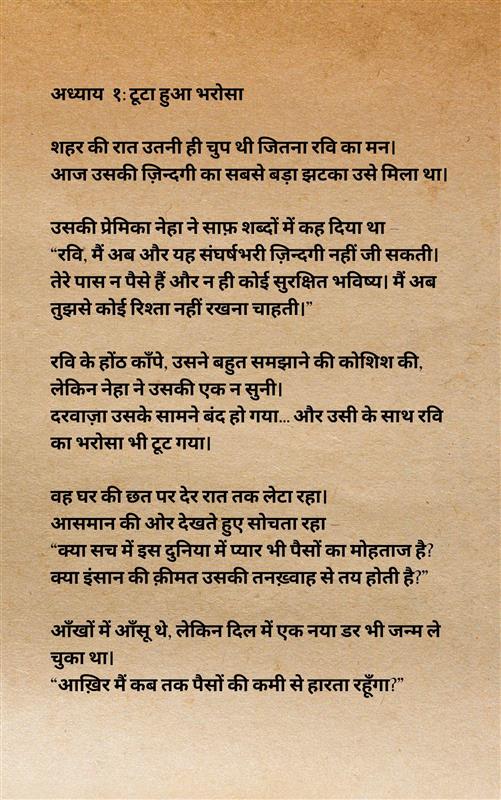 अध्याय १: टूटा हुआ भरोसा
शहर की रात उतनी ही चुप थी जितना रवि का मन।
आज उसकी ज़िन्दगी का सबसे बड़ा झटका उसे मिला था।
उसकी प्रेमिका नेहा ने साफ़ शब्दों में कह दिया था –
“रवि, मैं अब और यह संघर्षभरी ज़िन्दगी नहीं जी सकती।
तेरे पास न पैसे हैं और न ही कोई सुरक्षित भविष्य। मैं अब
तुझसे कोई रिश्ता नहीं रखना चाहती।”
रवि के होंठ काँपे, उसने बहुत समझाने की कोशिश की,
लेकिन नेहा ने उसकी एक न सुनी।
दरवाज़ा उसके सामने बंद हो गया... और उसी के साथ रवि
का भरोसा भी टूट गया।
वह घर की छत पर देर रात तक लेटा रहा।
आसमान की ओर देखते हुए सोचता रहा –
“क्या सच में इस दुनिया में प्यार भी पैसों का मोहताज है?
क्या इंसान की क़ीमत उसकी तनख़्वाह से तय होती है?”
आँखों में आँसू थे, लेकिन दिल में एक नया डर भी जन्म ले
चुका था।
“आख़िर मैं कब तक पैसों की कमी से हारता रहूँगा?”